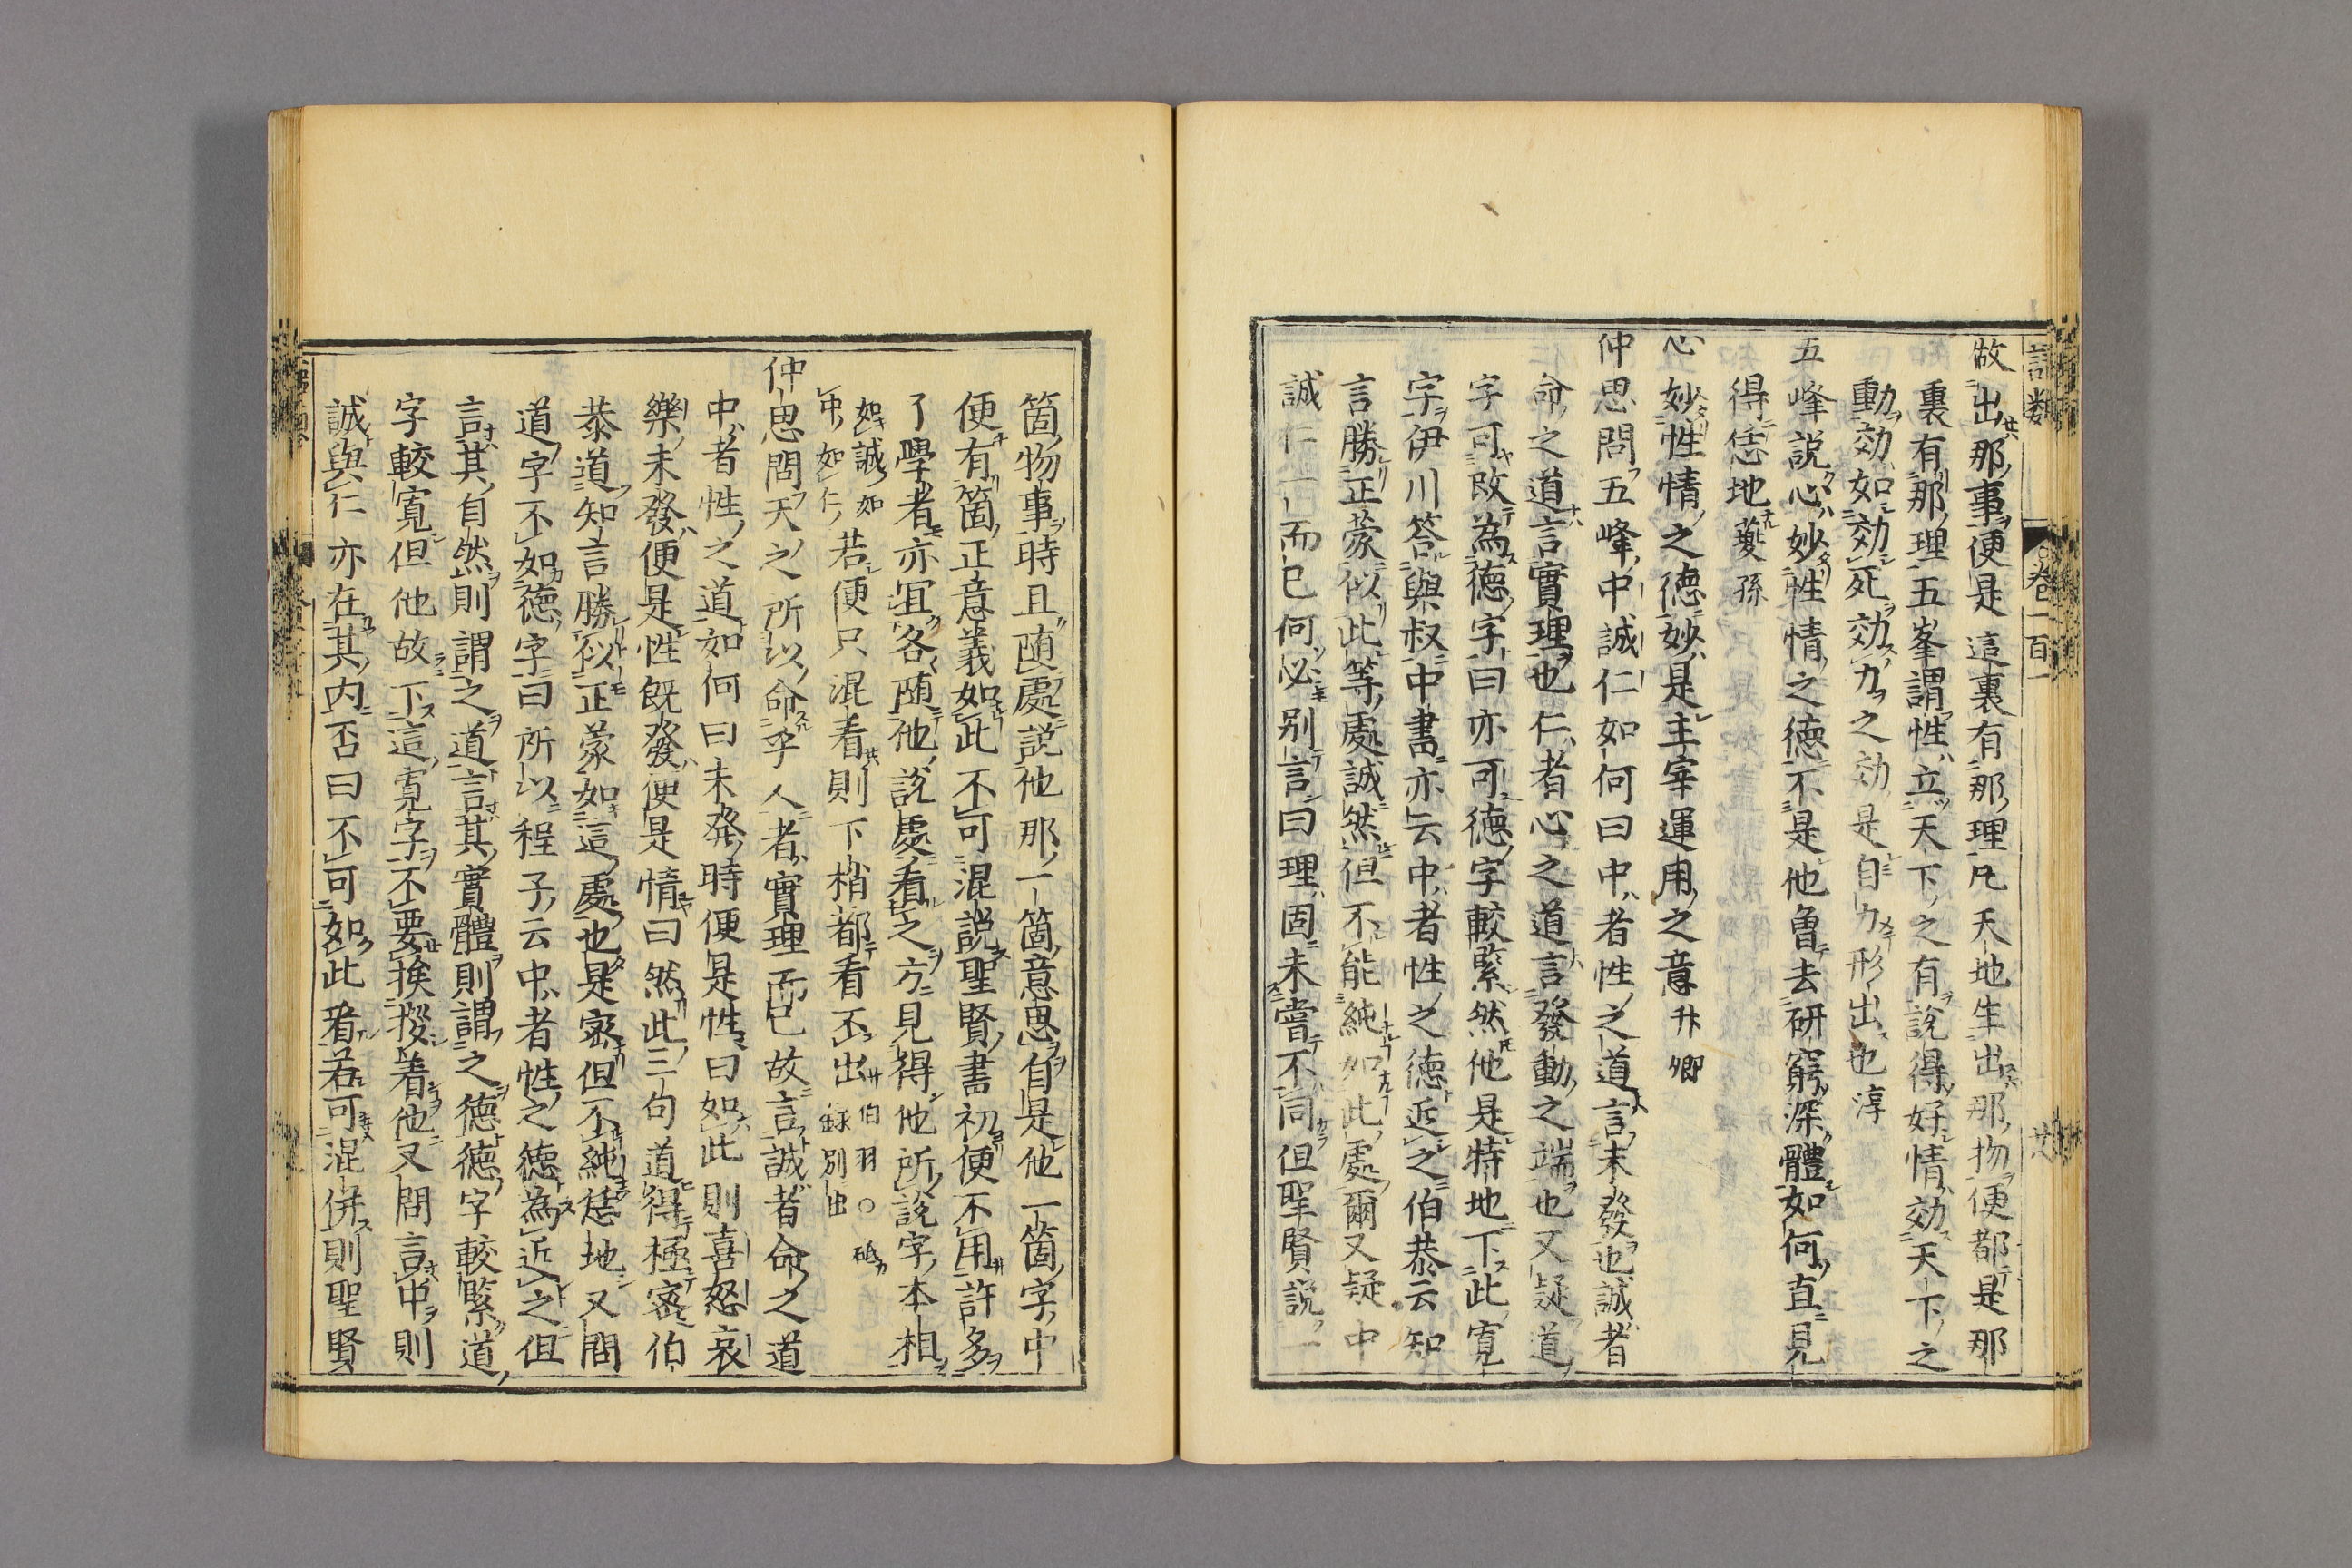 語類 卷一百一 廿八
做出那事便是這裏有那理凡天地生出那物便都是那
裏有那理五峯謂性立天下之有說得好情効天下之
動効如効死効力之効是自力形出也淳
五峰說心妙性情之德不是他曾去研窮深體如何直見
得恁地夔孫
心妙性情之德妙是主宰運用之意升卿
仲思問五峰中誠仁如何曰中者性之道言未發也誠者
命之道言實理也仁者心之道言發動之端也又疑道
字可改為德字曰亦可德字較緊然他是特地下此寬
字伊川答與叔中書亦云中者性之德近之伯恭云知
言勝正蒙似此等處誠然但不能純如此處爾又疑中
誠仁一而已何必別言曰理固未嘗不同但聖賢說一
箇物事時且随處說他那一箇意思自是他一箇字中
便有箇正意義如此不可混說聖賢書初便不用許多
了學者亦宜各随他說處看之方見得他所說字本相
如誠如
中如仁若便只混看則下梢都看不出伯羽○砥
錄別出
仲思問天之所以命乎人者實理而已故言誠者命之道
中者性之道如何曰未発時便是性曰如此則喜怒哀
樂未發便是性既發便是情曰然此三句道得極密伯
恭道知言勝似正蒙如這處也是密但不純恁地又問
道字不如德字曰所以程子云中者性之德為近之但
言其自然則謂之道言其實體則謂之德德字較緊道
字較寬但他故下這寬字不要挨拶着他又問言中則
誠與仁亦在其内否曰不可如此看若可混併則聖賢